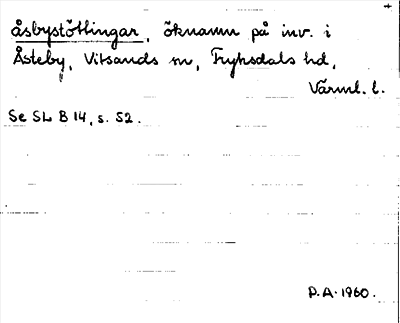 åsbystöttingar, öknamn på inv. i
Åsteby, Vitsands sn, Fryksdals hd,
Värml. l.
Se SL B 14, s. 52.
P.A. 1960.